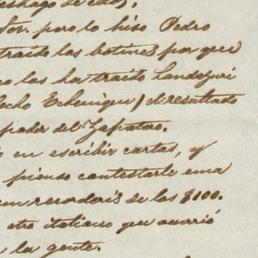 Sor. pero lo hiso Pedro
traido los botines por que
los ha traido Landizuri
Echenique) el resultado
poder del Zapatero.
en escribir cartas, y
pienso contestarle una
recordaris de los $100.
otro italiano que ocurrió
a la gente.